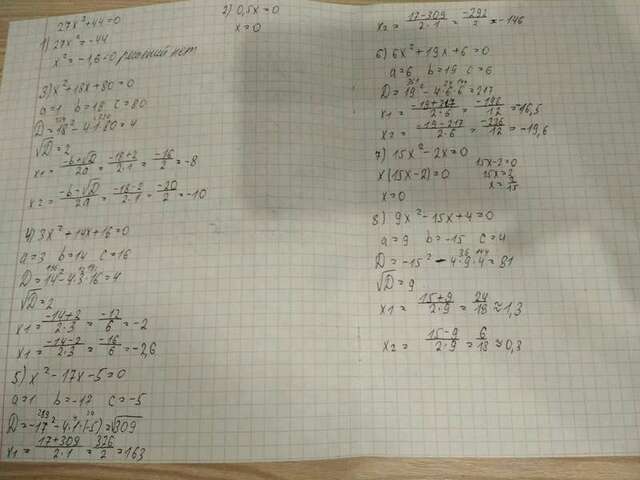 27x²+44=0
1) 27x²=-44
x²=-1,6<0 решений нет
3) x²+18x+80=0
a=1 b=18 c=80
D=18²-4·1·80=4
√D=2
x1=(-b+√D)/2a=(-18+2)/2·1=-16/2=-8
x2=(-b-√D)/2a=(-18-2)/2·1=-20/2=-10
4) 3x²+14x+16=0
a=3 b=14 c=16
D=14²-4·3·16=4
√D=2
x1=(-14+2)/2·3=-12/6=-2
x1=(-14-2)/2·3=-16/6=-2,6
5) x²-17x-5=0
a=1 b=-17 c=-5
D=-17²-4·1·(-5)=√309
x1=(17+309)/2·1=326/2=163
2) 0,5x=0
x=0
x2=(17-309)/2·1=-292/2=-146
6) 6x²+19x+6=0
a=6 b=19 c=6
D=19²-4·6·6=217
x1=(-19+217)/2·6=-198/12=16,5
x2=(-19-217)/2·6=-236/12=-19,6
7) 15x²-2x=0
x(15x-2)=0
x=0
15x-2=0
15x=2
x=2/15
8) 9x²-15x+4=0
a=9 b=-15 c=4
D=-15²-4·9·4=81
√D=9
x1=(15+9)/2·9=24/18≈1,3
x2=(15-9)/2·9=6/18≈0,3